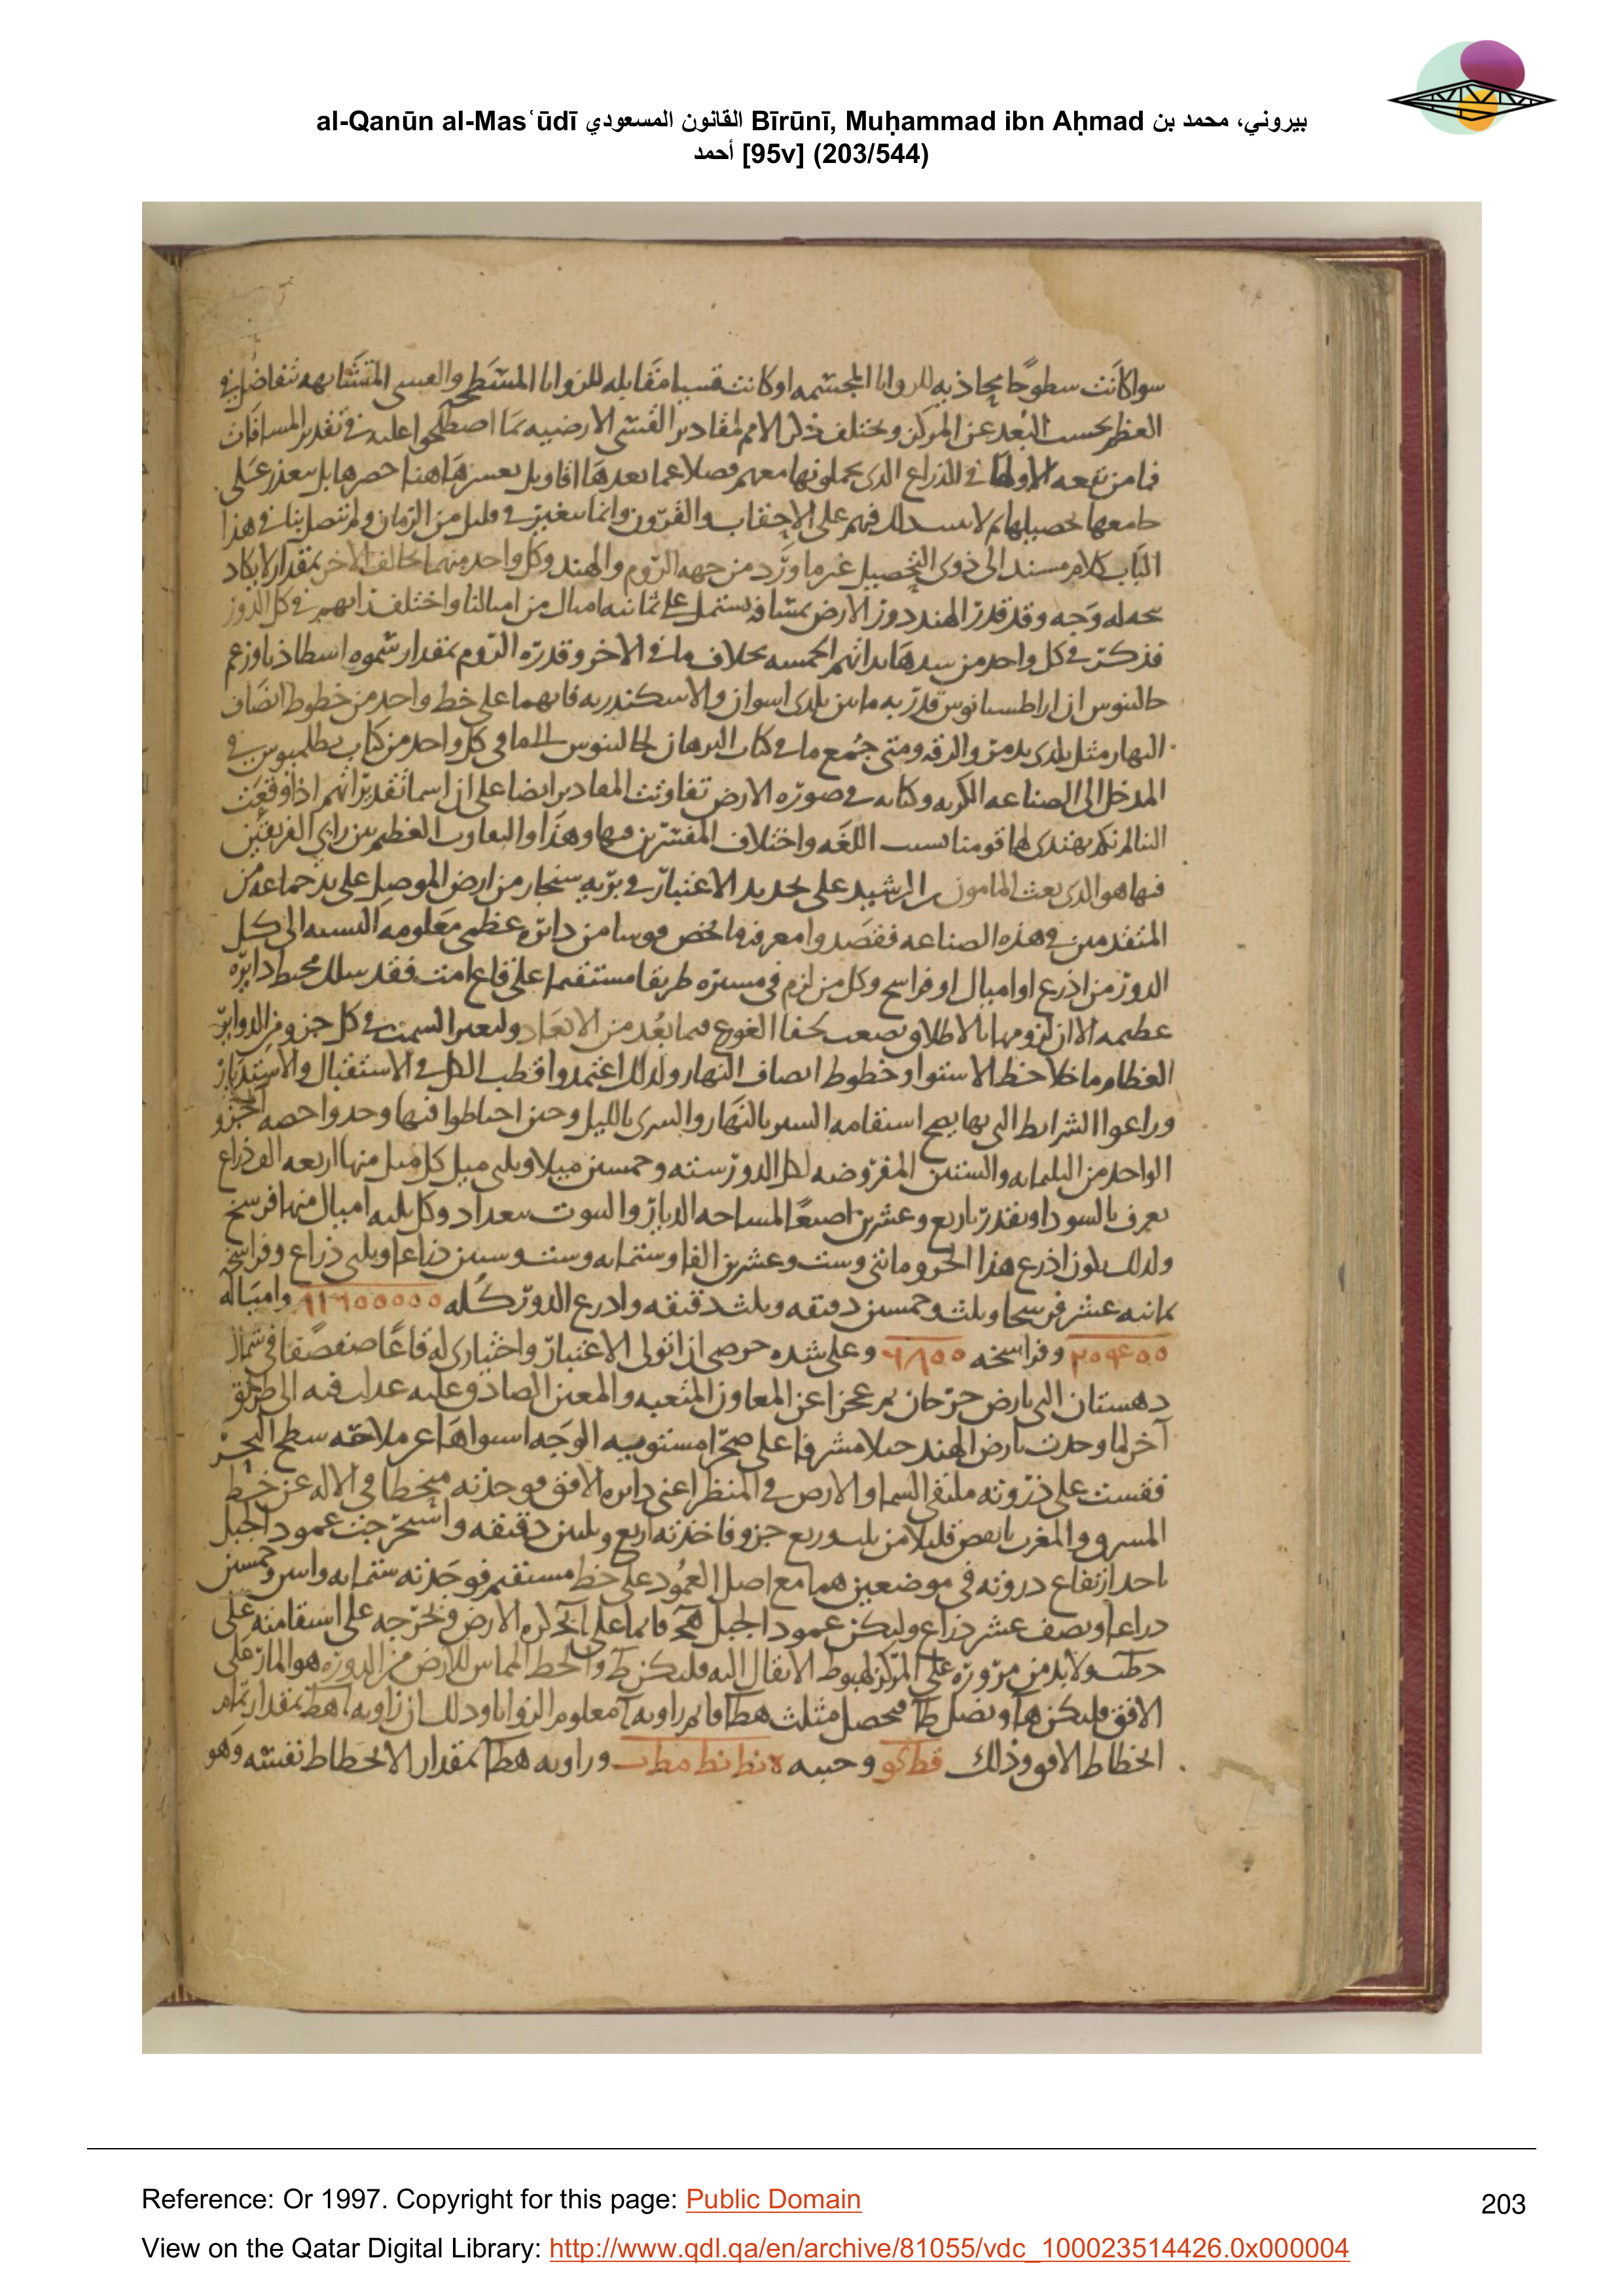 al-Qanūn al-Masʿūdī القانون المسعودي Bīrūnī, Muḥammad ibn Aḥmad بيروني، محمد بن
أحمد [95v] (203/544)
سوا كانت سطوحا محاذيه للزوايا المجسمه او كانت قسيا مقابله للزوايا المسطحه والقسى المتشابهه تتفاضل في
العظم بحسب البعد عن المركز ويختلف ذكر الامم لمقادير القسى الارضيه بما اصطلحوا عليه في تقدير المسافات
فما من بقعه الا ولها في الذراع الذى يحملونها معهم فضلا عما بعدها اقاويل يعسر هاهنا حصرها بل يتعذر على
جامعها تحصيلها ثم لا على الاحقاب والقرون وانما يتغير في قليل من الزمان ولم يتصل بنا في هذا
الباب كلام مسند الى ذوى التحصيل غير ما ورد من جهه الروم والهند وكل واحد منهما يخالف الاخر بمقدار لا يكاد
له وجه وقد قدر الهند دور الارض بمسافه يشتمل على ثمانيه اميال من اميالنا واختلف في كل الدور
فذكر في كل واحد من الخمسه بخلاف ما في الاخر وقدره الروم بمقدار سموه اسطاذيا وزعم
جالينوس ان اراطسثانوس قدر به ما بين بلدى اسوان والاسكندريه فانهما على خط واحد من خطوط انصاف
النهار مثل بلدى تدمر والرقه ومتى جمع ما في كتاب البرهان لجالينوس الى ما في كل واحد من كتاب بطلميوس في
المدخل الى الصناعه الكريه وكتابه في صوره الارض تفاوتت المقادير ايضا على ان اسما تقديراتهم اذا وقعت
الينا لم نكد نهتدى لها قومنا بسبب اللغه واختلاف المفسرين فيها وهذا والتفاوت العظيم بين رايي الفريقين
فيها هو الذى بعث المامون بن الرشيد على تجديد الاعتبار في بريه سنجار من ارض الموصل على يد جماعه من
المتقدمين في هذه الصناعه فقصدوا معرفه ما يخص قوسا من دائره عظمى معلومه النسبه الى كل
الدور من اذرع او اميال او فراسخ وكل من لزم في مسيره طريقا مستقيما على قاع امت فقد سلك محيط دايره
عظيمه الا ان لزومها بالاطلاق يصعب لخفا فيما بعد من الابعاد ولتغير السمت في كل جزو من الدواير
العظام ما خلا خط الاستوا وخطوط انصاف النهار ولذلك اعتمدوا قطب الكل في الاستقبال والاستدبار
وراعوا الشرايط التى بها يصح استقامه السير بالنهار والسرى بالليل وحين احتاطوا فيها وجدوا حصه الجزو
الواحد من الثلثمايه والستين المفروضه لكل الدور سته وخمسين ميلا وثلثى ميل كل ميل منها اربعه الف ذراع
يعرف بالسودا ويقدر باربع وعشرين اصبعا لمساحه الديار والبيوت ببغداد وكل ثلثه اميال منها فرسخ
ولذلك يكون اذرع هذا الجزو مائتى وست وعشرين الفا وستمايه وست وستين ذراعا وثلثى ذراع وفراسخه
ثمانيه عشر فرسخا وثلث وخمسين دقيقه وثلث دقيقه واذرع الدور كله ٨١٦٠٠٠٠٠ وامياله
٢٠٤٠٠ وفراسخه ٦٨٠٠ وعلى شده حرصى ان اتولى الاعتبار واختيارى له قاعا صفصفا في شمال
دهستان التى بارض جرجان ثم عجزا عن المفاوز المتعبه والمعين الصادق عليه عدلت فيه الى طريق
آخر لما وجدت بارض الهند جبلا مشرفا على صحرا مستويه الوجه ملاحقه سطح البحر
فقست على ذروته ملتقى السما والارض في المنظر اعنى دايره الافق فوجدته منحطا في الاله عن خط
المشرق والمغرب بانقص قليلا من ثلث وربع جزو فاخذته اربع وثلثين دقيقه واستخرجت عمود الجبل
باخذ ارتفاع ذروته في موضعين هما مع اصل العمود على خط مستقيم فوجدته ستمايه واثنين وخمسين
ذراعا ونصف عشر ذراع وليكن عمود الجبل هج قائما على كره الارض فنخرجه على استقامته على
ولابد من مروره على المركز لهبوط الاثقال اليه فليكن ط والخط المماس للارض من الذروه هو المار على
الافق فليكن ها ونصل طا فيحصل مثلث هطا قائم زاويه ا معلوم الزوايا وذلك ان زاويه اهط بمقدار تمام
انحطاط الافق وذلك فط كو وجيبه ه نط نط مط وزاويه هطا بمقدار الانحطاط نفسه وهو
Reference: Or 1997. Copyright for this page: Public Domain
203
View on the Qatar Digital Library: http://www.qdl.qa/en/archive/81055/vdc_100023514426.0x000004